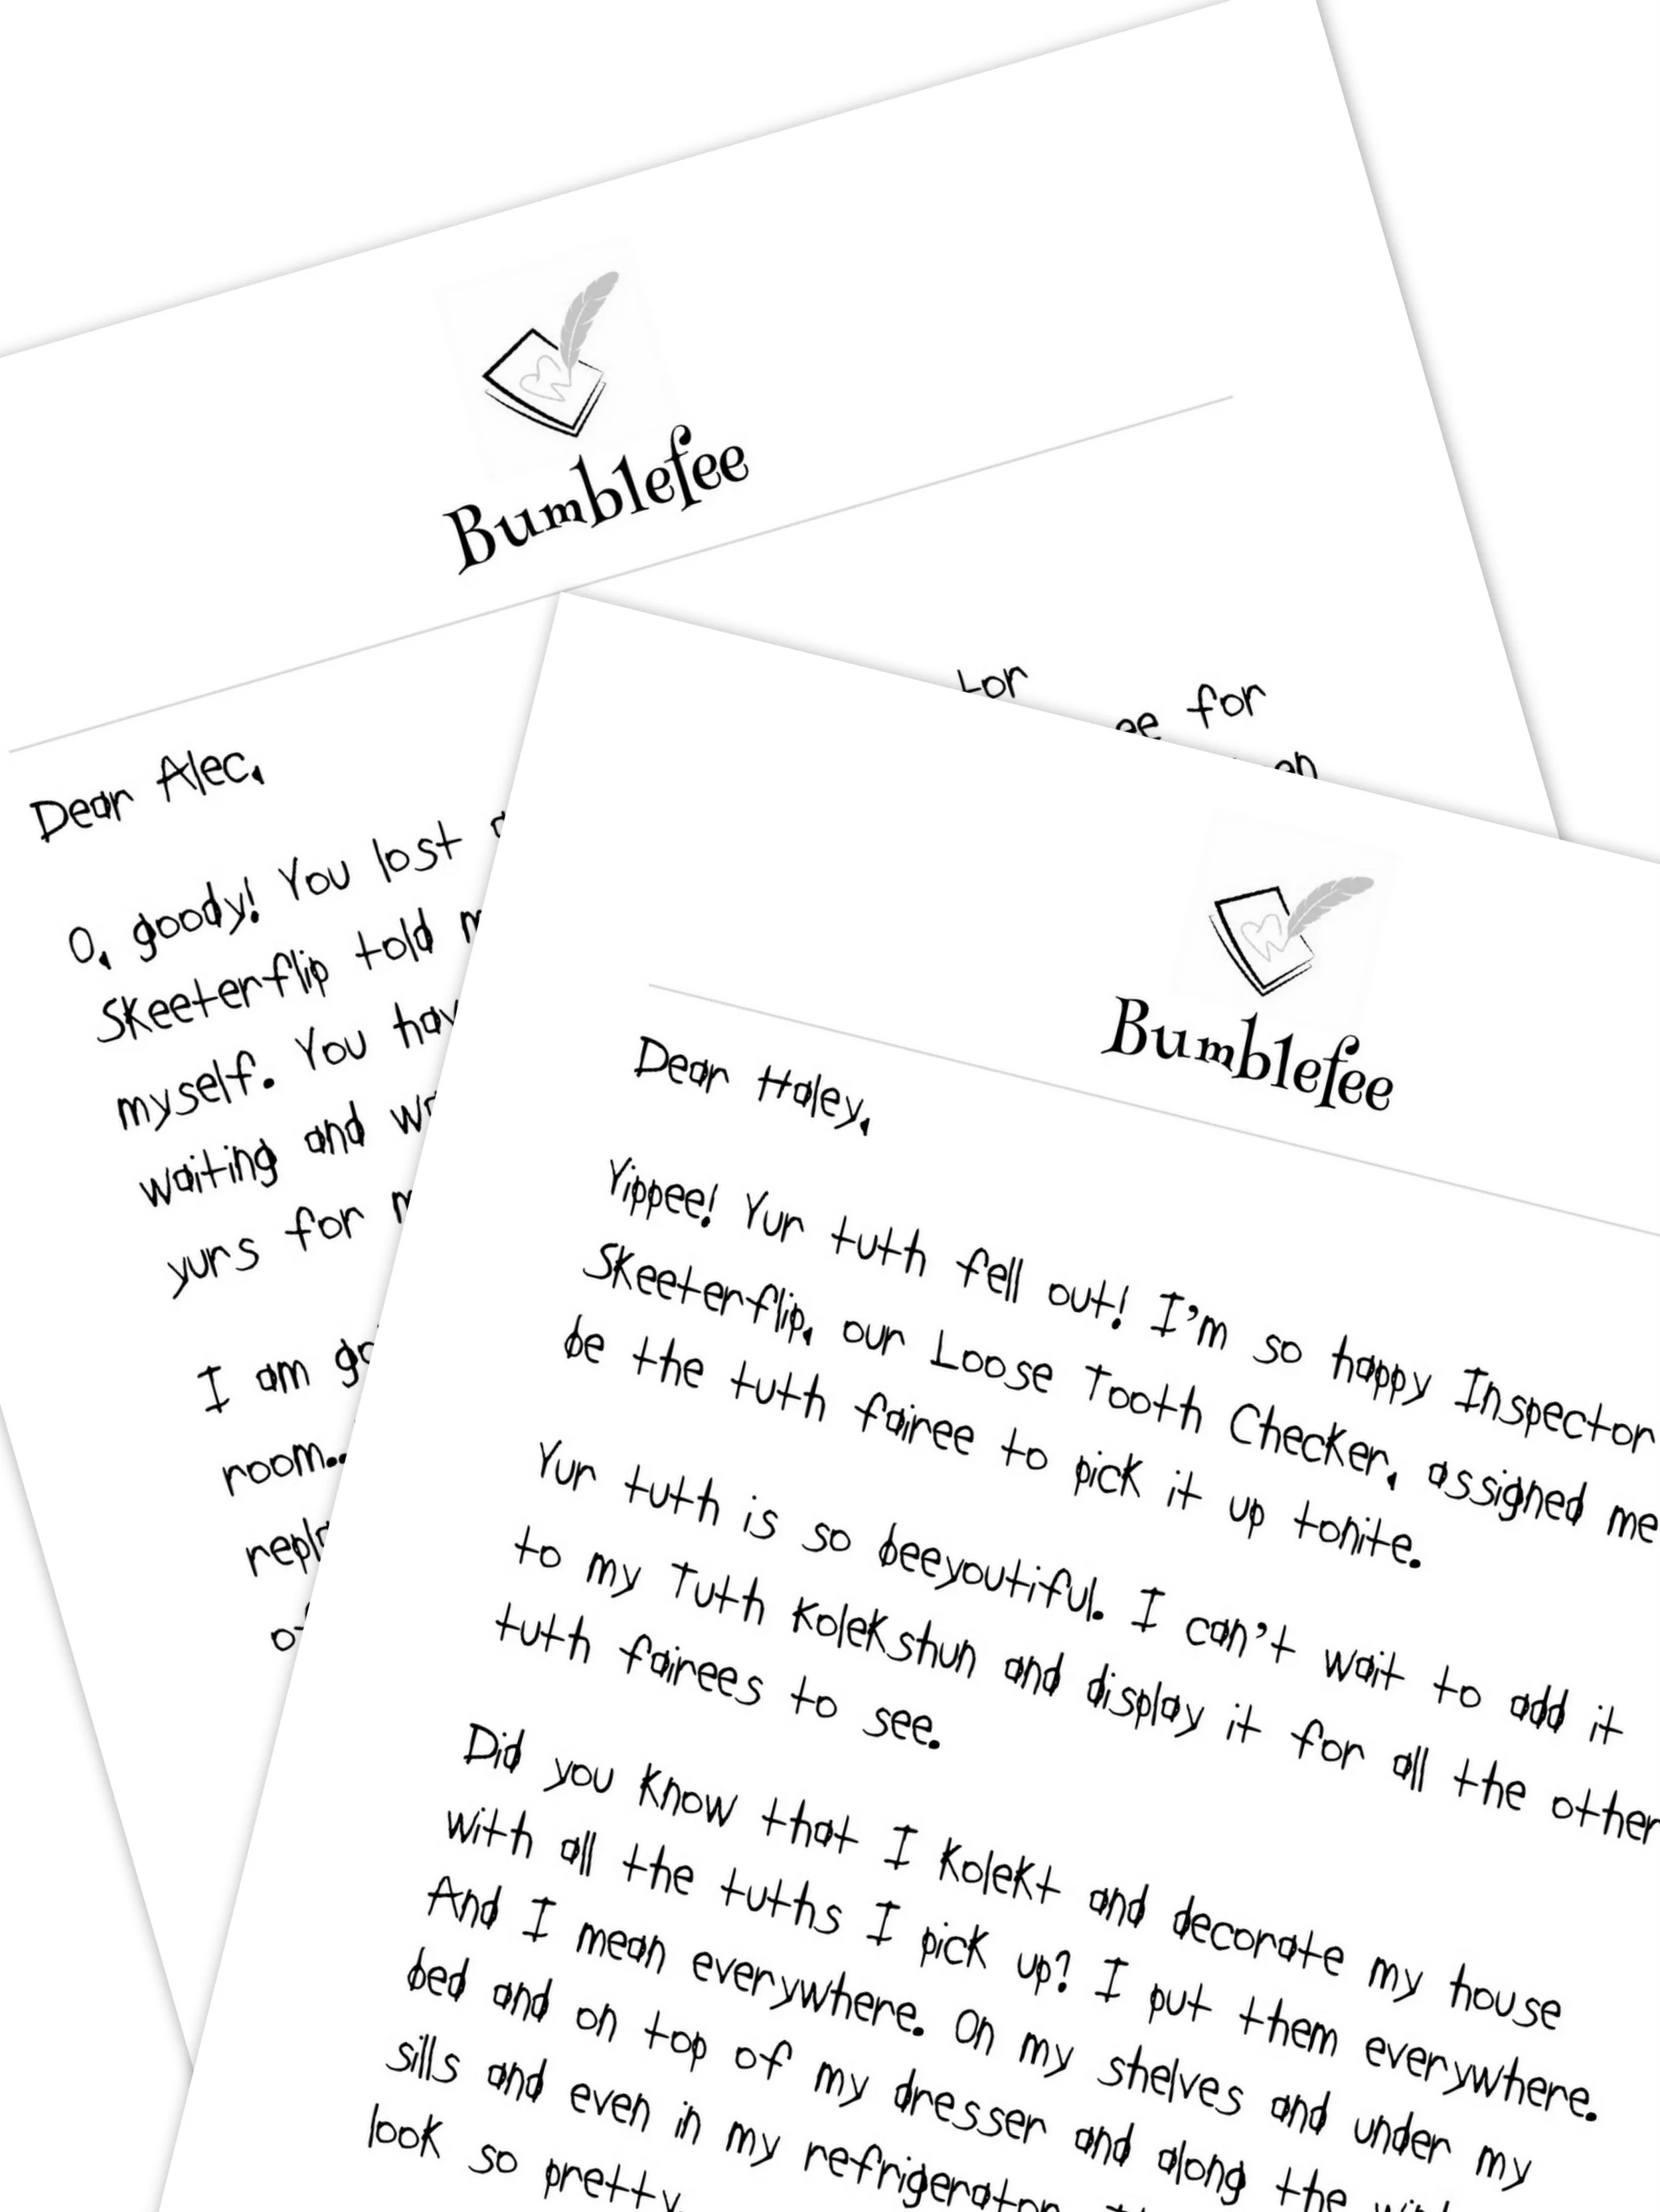 Bumblefee
for
Dear Alec,
O, goody! You lost
Skeeterflip told
myself. You
waiting and
yurs for
I am
room..
Bumblefee
Dear Haley,
Yippee! Yur tuth fell out! I'm so happy Inspector
Skeeterflip, our Loose Tooth Checker, assigned me
be the tuth fairee to pick it up tonite.
Yur tuth is so beeyoutiful. I can't wait to add it
to my Tuth Kolekshun and display it for all the other
tuth fairees to see.
Did you know that I kolekt and decorate my house
with all the tuths I pick up? I put them everywhere.
And I mean everywhere. On my shelves and under my
bed and on top of my dresser and along the
sills and even in my refrigerator
look so pretty